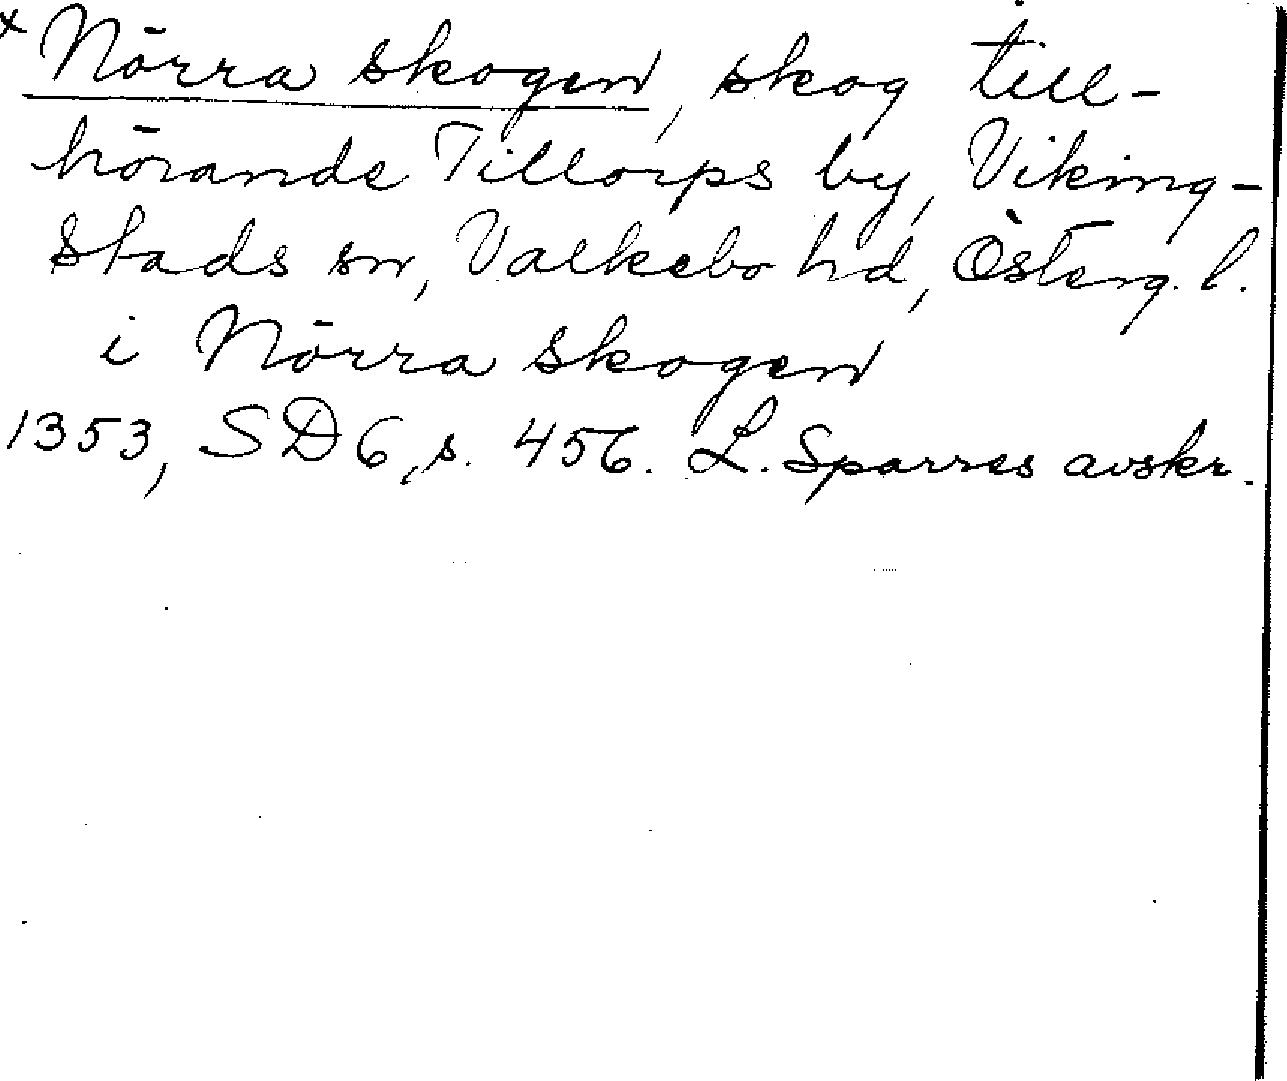 x Nörra skogen, skog till-
hörande Tillorps by, Viking-
stads sn, Valkebo hd, Österg. l.
i Nörra skogen
1353, SD 6, s. 456. L. Sparres avskr.